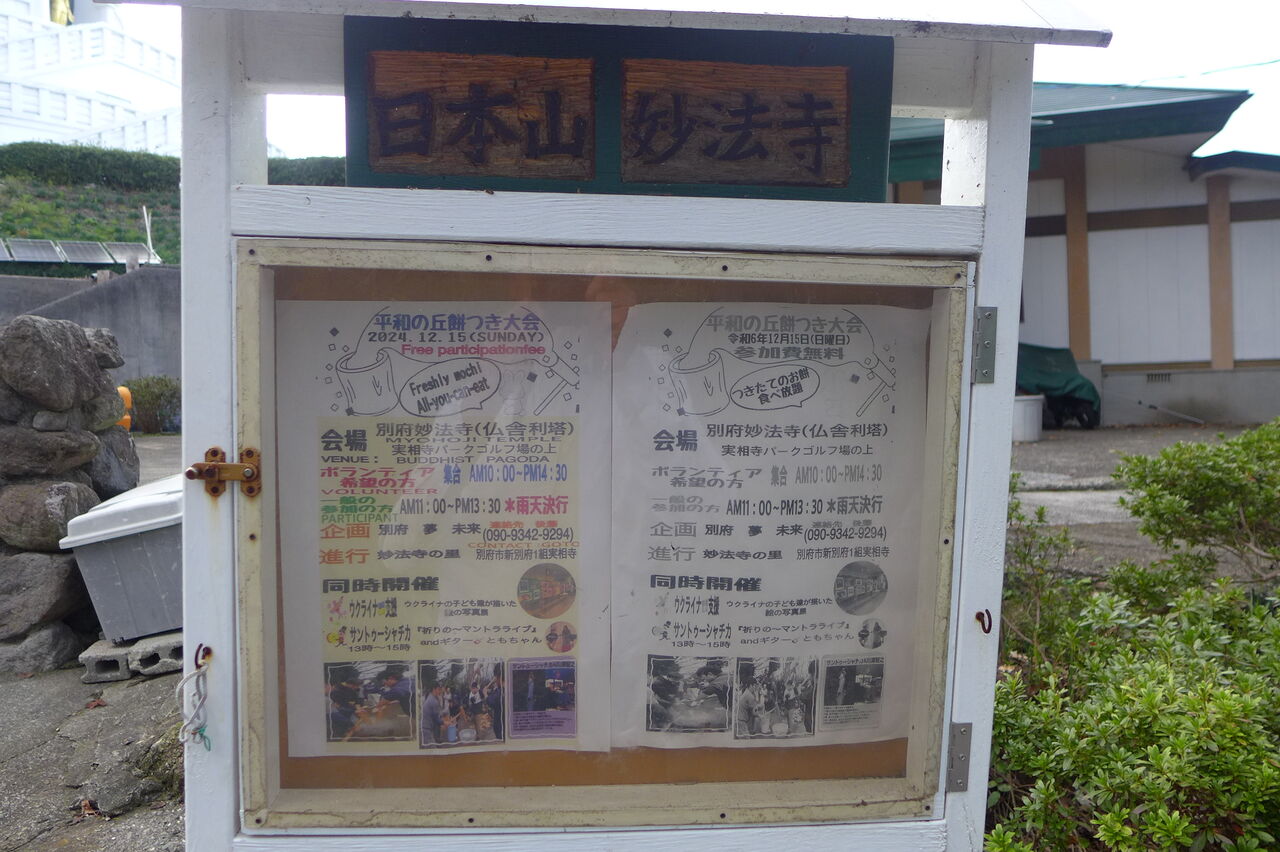 日本山 妙法寺
平和の丘餅つき大会
2024.12.15(SUNDAY)
Free participationfee
Freshly mochi
All-you-can-eat
会場 別府妙法寺(仏舎利塔)
MYOHOJI TEMPLE
実相寺パークゴルフ場の上
VENUE: BUDDHIST PAGODA
ボランティア
希望の方 集合 AM10:00~PM14:30
VOLUNTEER
一般の
参加の方 AM11:00~PM13:30 *雨天決行
PARTICIPANT
企画 別府 夢 未来 連絡先 後藤
(090-9342-9294)
CONTACT GOTO
進行 妙法寺の里 別府市新別府1組実相寺
同時開催
ウクライナ 支援 ウクライナの子ども達が描いた
絵の写真展
サントゥーシャチカ 『祈りの~マントラライブ』
13時~15時 andギター♂ともちゃん
平和の丘餅つき大会
令和6年12月15日(日曜日)
参加費無料
つきたてのお餅
食べ放題
会場 別府妙法寺(仏舎利塔)
実相寺パークゴルフ場の上
ボランティア
希望の方 集合 AM10:00~PM14:30
一般の
参加の方 AM11:00~PM13:30 *雨天決行
企画 別府 夢 未来 連絡先 後藤
(090-9342-9294)
進行 妙法寺の里 別府市新別府1組実相寺
同時開催
ウクライナ 支援 ウクライナの子ども達が描いた
絵の写真展
サントゥーシャチカ 『祈りの~マントラライブ』
13時~15時 andギター♂ともちゃん